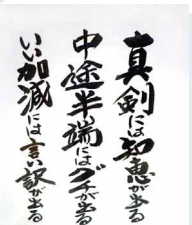 真剣には知恵が出る
中途半端にはグチが出る
いい加減には言い訳が出る